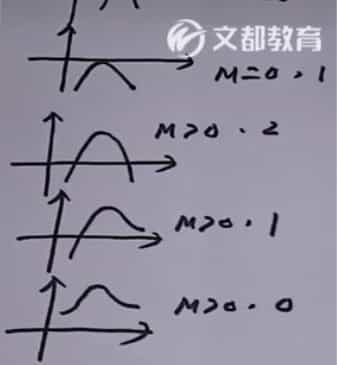 文都教育
M=0,1
M>0.2
M>0.1
M>0.0